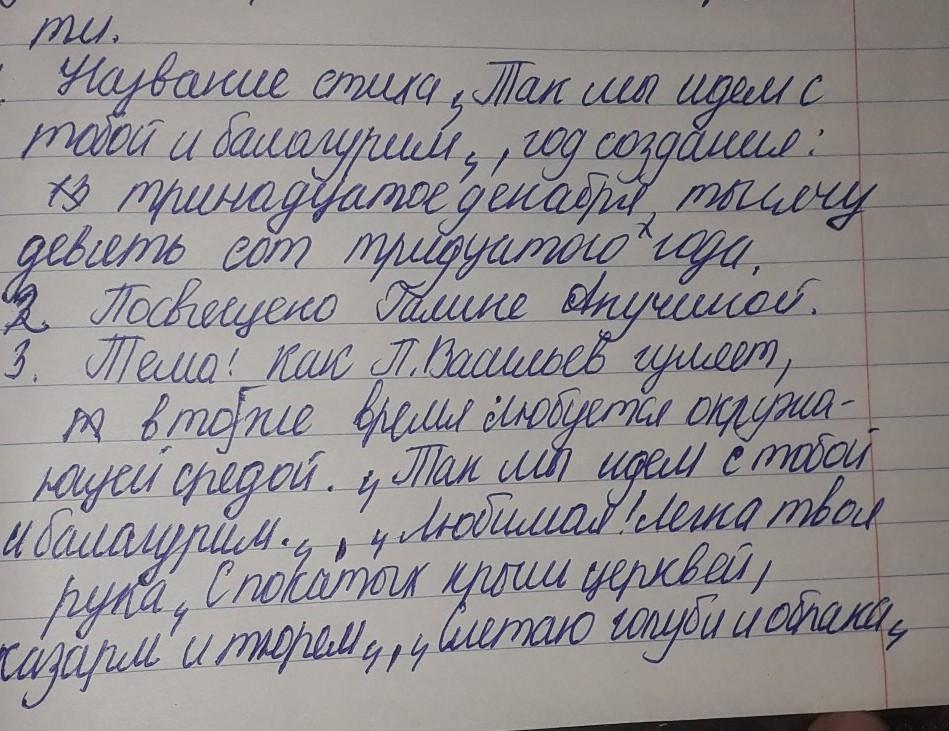 ти.
Название стиха „Так мы идем с
тобой и балагурим„, год создания:
тринадцатое декабря, тысячу
девять сот тридцатого года.
2. Посвящено Галине Анучиной.
3. Тема! Как П.Васильев гуляет,
в тоже время любуется окружа-
ющей средой. „Так мы идем с тобой
и балагурим.„, „Любимая! Легка твоя
рука„ С покатых крыш церквей,
казарм и тюрем„,„Слетаю голуби и облака„